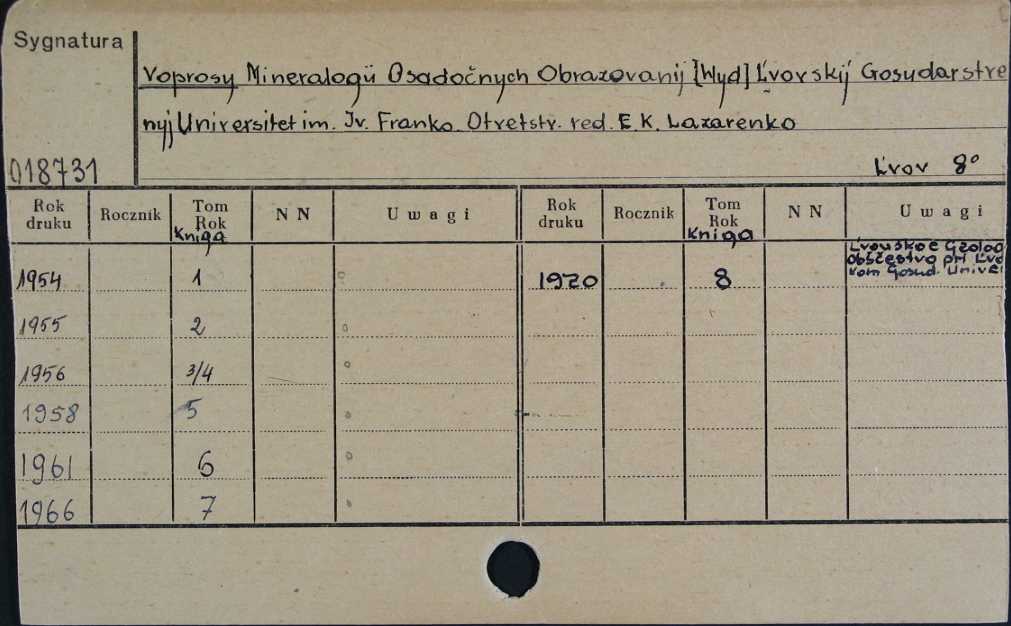 Sygnatura
Voprosy Mineralogii Osadočnych Obrazovanij [Wyd] L'vovskij Gosudarstve
nyj Universitet im. Iv. Franko. Otvetstv. red. E. K. Lazarenko
018731
L'vov 8°
Rok druku Rocznik Tom Rok Kniga N N Uwagi Rok druku Rocznik Tom Rok Kniga N N Uwagi
1954 1 1970 8 L'vovskoe Geolog
obščestvo pri L'vo
vom Gosud. Univer
1955 2
1956 3/4
1958 5
1961 6
1966 7